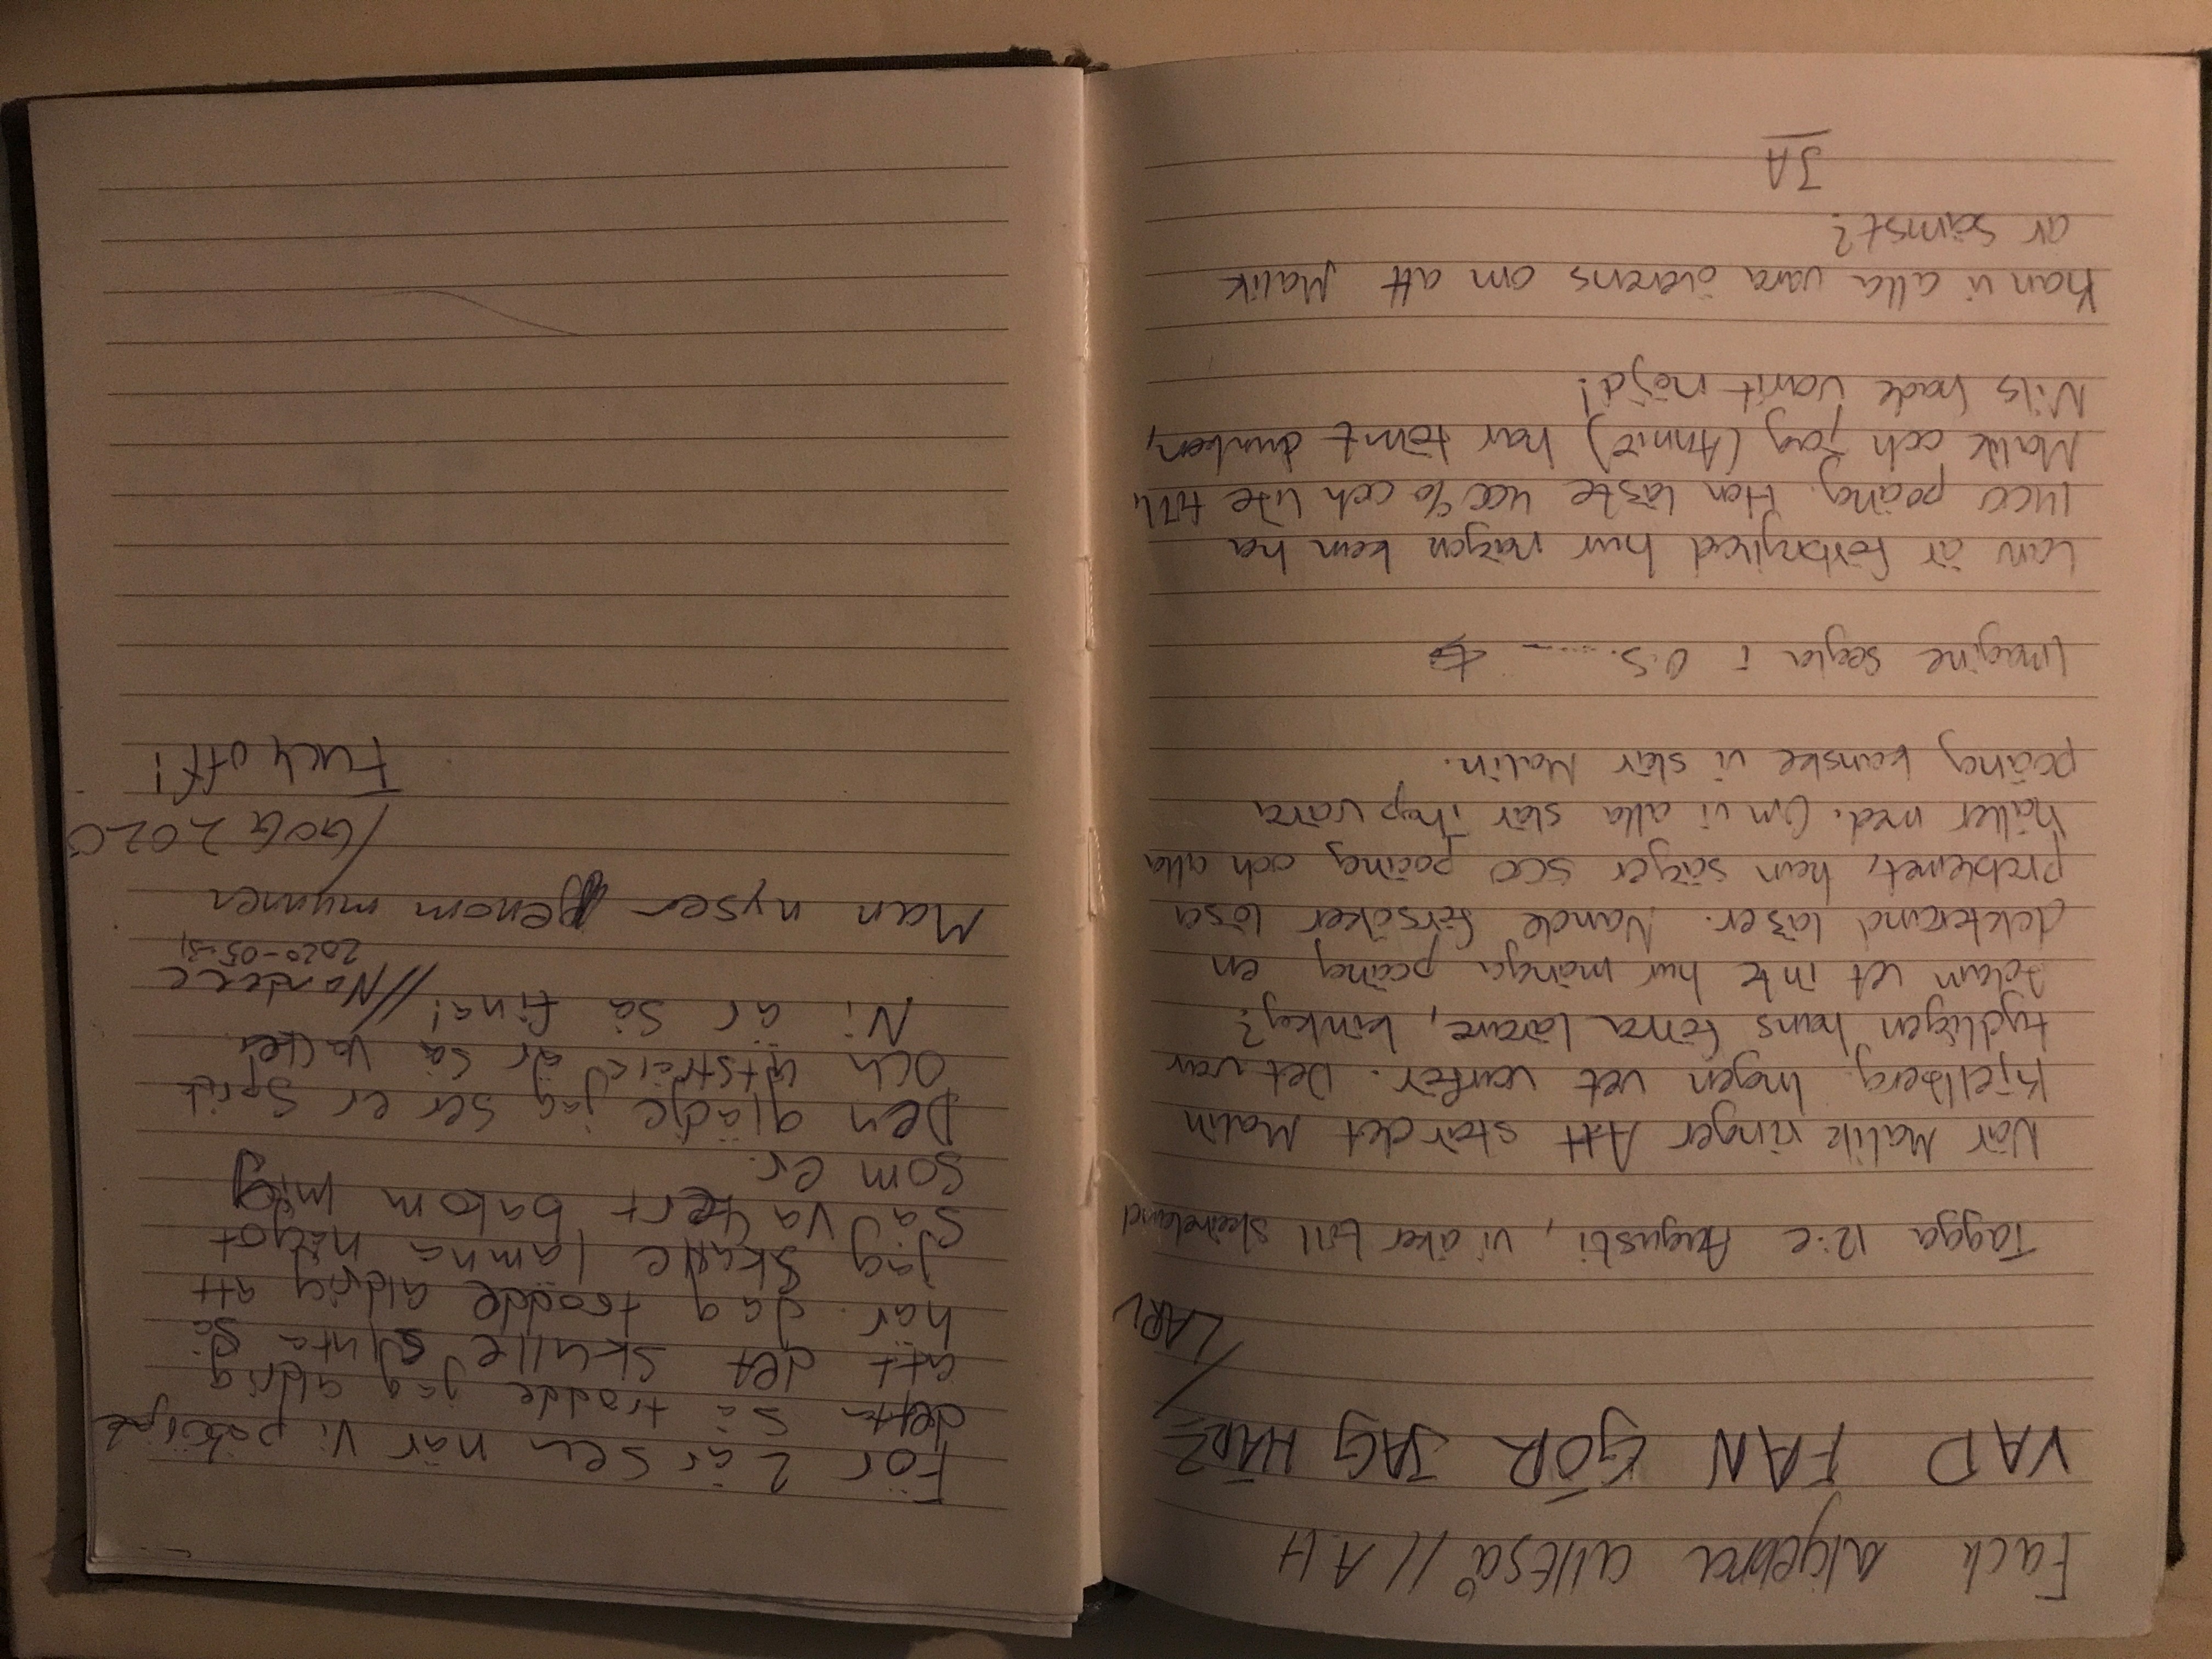 Fack algebra alltså // AH
VAD FAN GÖR JAG HÄR?
/LARL
Tagga 12:e Augusti, vi åker till skeneland
När Malik ringer Att står det Malin
Kjellberg. Ingen vet varför. Det var
tydligen hans förra lärare, kinkey?
Adam vet inte hur många poäng en
doktorand läser. Nande försöker lösa
problemet, han säger 500 poäng och alla
håller med. Om vi alla slår ihop våra
poäng kanske vi slår Malin.
Imagine segla i OS.......
Lan är förbryllad hur någon kan ha
1400 poäng. Hon läste 400% och lite till,
Malik och jag (Annie) har tömt dunken,
Nils hade varit nöjd!
Kan vi alla vara överens om att Malik
är sämst?
JA
För 2 år sen när vi påbörjat
detta så trodde jag aldrig
att det skulle sluta så
här. Jag trodde aldrig att
jag skulle lämna något
så vackert bakom mig
som er.
Den glädje jag ser er sprit
och utstråld är så vacker.
Ni är så fina! //Nandece
2020-05-31
Man nyser genom munnen
/GOG 2020
Fuck off!